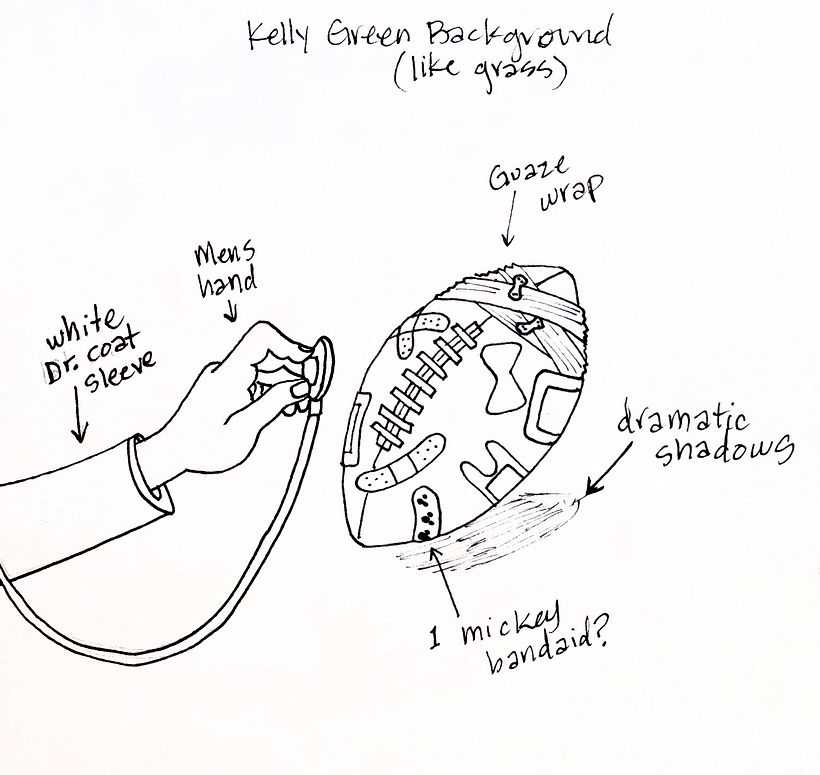 Kelly Green Background
(like grass)
Guaze
wrap
Mens
hand
white
Dr. coat
sleeve
dramatic
shadows
1 mickey
bandaid?